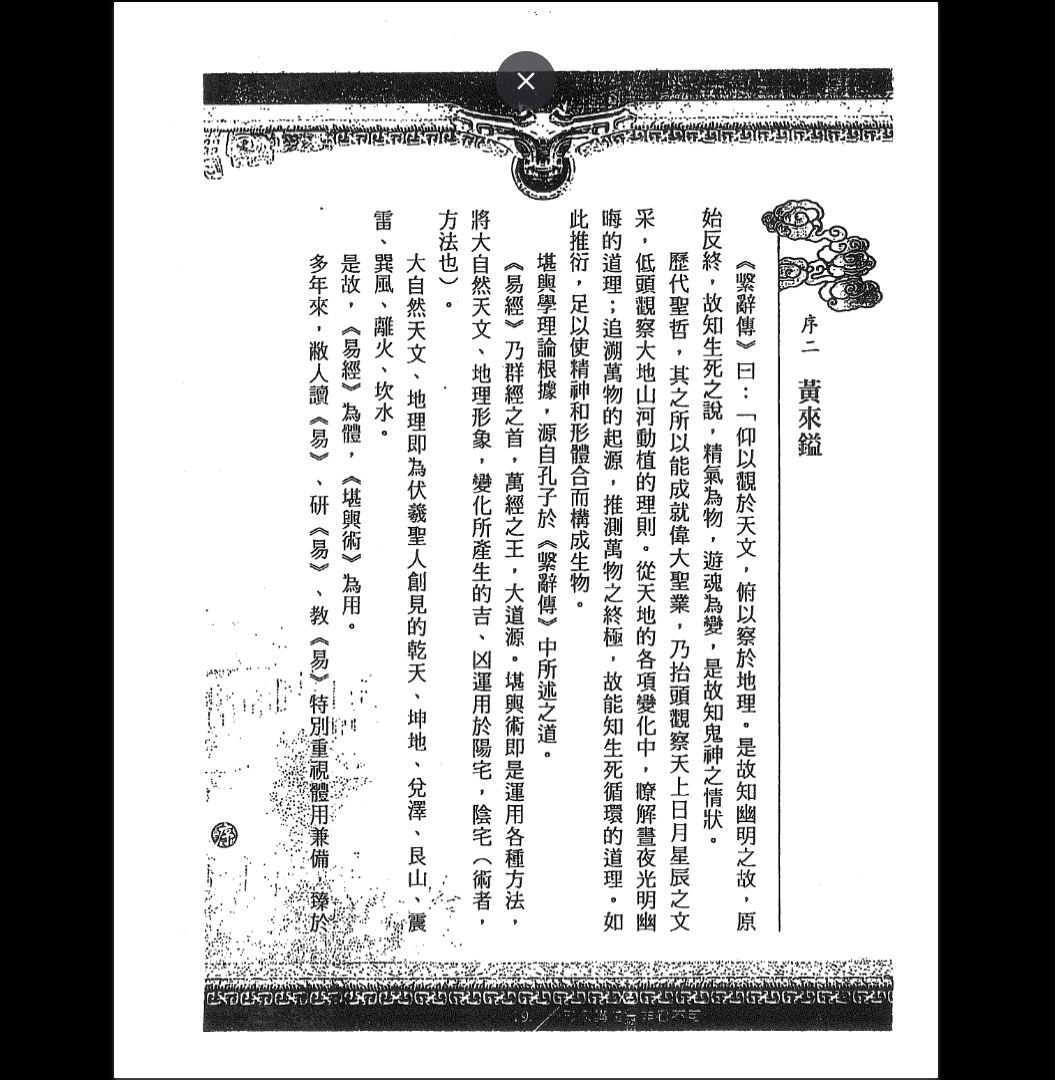 序二 黃來鎰
《繫辭傳》曰：「仰以觀於天文，俯以察於地理。是故知幽明之故，原
始反終，故知生死之說，精氣為物，遊魂為變，是故知鬼神之情狀。
歷代聖哲，其之所以能成就偉大聖業，乃抬頭觀察天上日月星辰之文
采，低頭觀察大地山河動植的理則。從天地的各項變化中，瞭解晝夜光明幽
晦的道理；追溯萬物的起源，推測萬物之終極，故能知生死循環的道理。如
此推衍，足以使精神和形體合而構成生物。
堪輿學理論根據，源自孔子於《繫辭傳》中所述之道。
《易經》乃群經之首，萬經之王，大道源。堪輿術即是運用各種方法，
將大自然天文、地理形象，變化所產生的吉、凶運用於陽宅，陰宅（術者，
方法也）。
大自然天文、地理即為伏羲聖人創見的乾天、坤地、兌澤、艮山、震
雷、巽風、離火、坎水。
是故，《易經》為體，《堪輿術》為用。
多年來，敝人讀《易》、研《易》、教《易》特別重視體用兼備，臻於